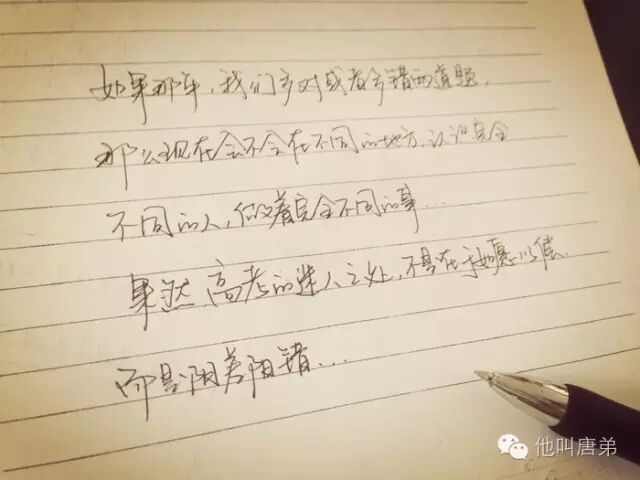 如果那年,我们多对或者多错两道题,
那么现在会不会在不同的地方,认识完全
不同的人,做着完全不同的事...
果然,高考的迷人之处,不是在于如愿以偿,
而是阴差阳错...
他叫唐弟